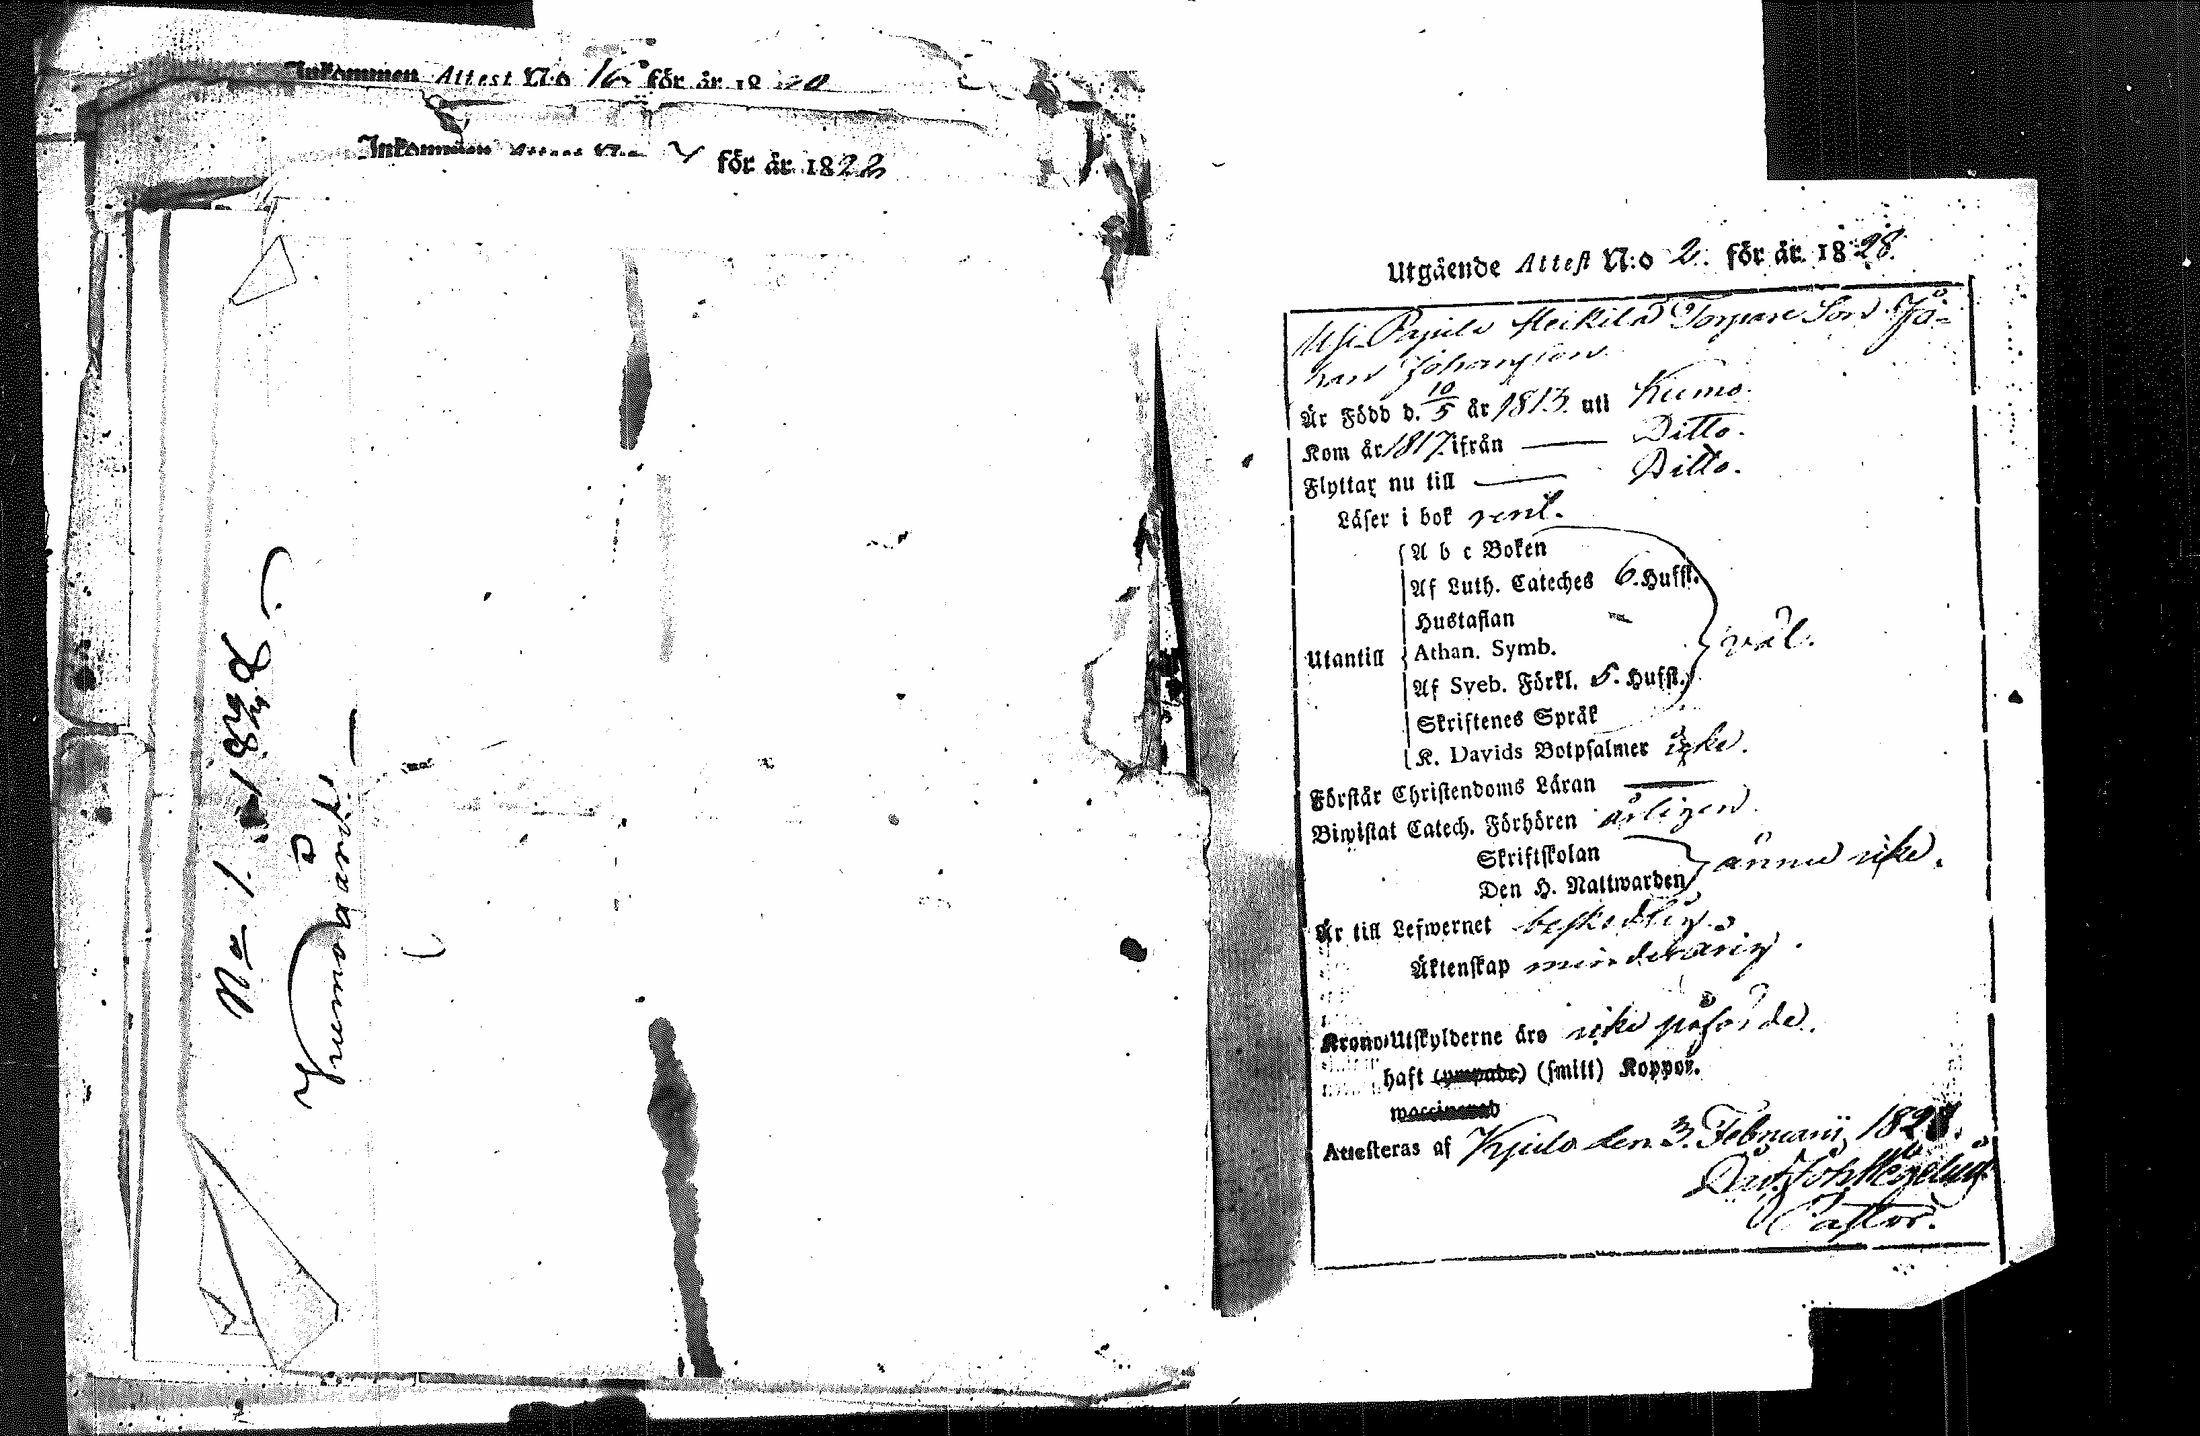 Inkommen Attest N:o 16 för år 1820
Inkommen Attest N:o för år 1822
No 1. 1828.
Kumogård.
Utgående Attest N:o 2. för år 1828.
Pajula Heikilä Torpare Son Jo-
han Johansson
Är Född d. 10/5 år 1813. uti Kumo.
Kom år 1817. ifrån — Ditto.
Flyttar nu till — Ditto.
Läser i bok rent.
A b c Boken
Af Luth. Cateches 6. Huffst.
Hustaflan
Utantill Athan. Symb. väl.
Af Sveb. Förkl. 5. Hufst.
Skriftenes Språk
K. Davids Botpsalmer icke.
Förstår Christendoms Läran —
Biwistat Catech. Förhören årligen.
Skriftskolan ännu icke.
Den H. Nattwarden
Är till Lefwernet beskedlig.
Äktenskap minderårig.
Krono-Utskylderne äro icke påförde.
haft (ympade) (smitt) Koppor.
waccinerad
Attesteras af Kjulo den 3. Februarii, 1828.
Pastor.